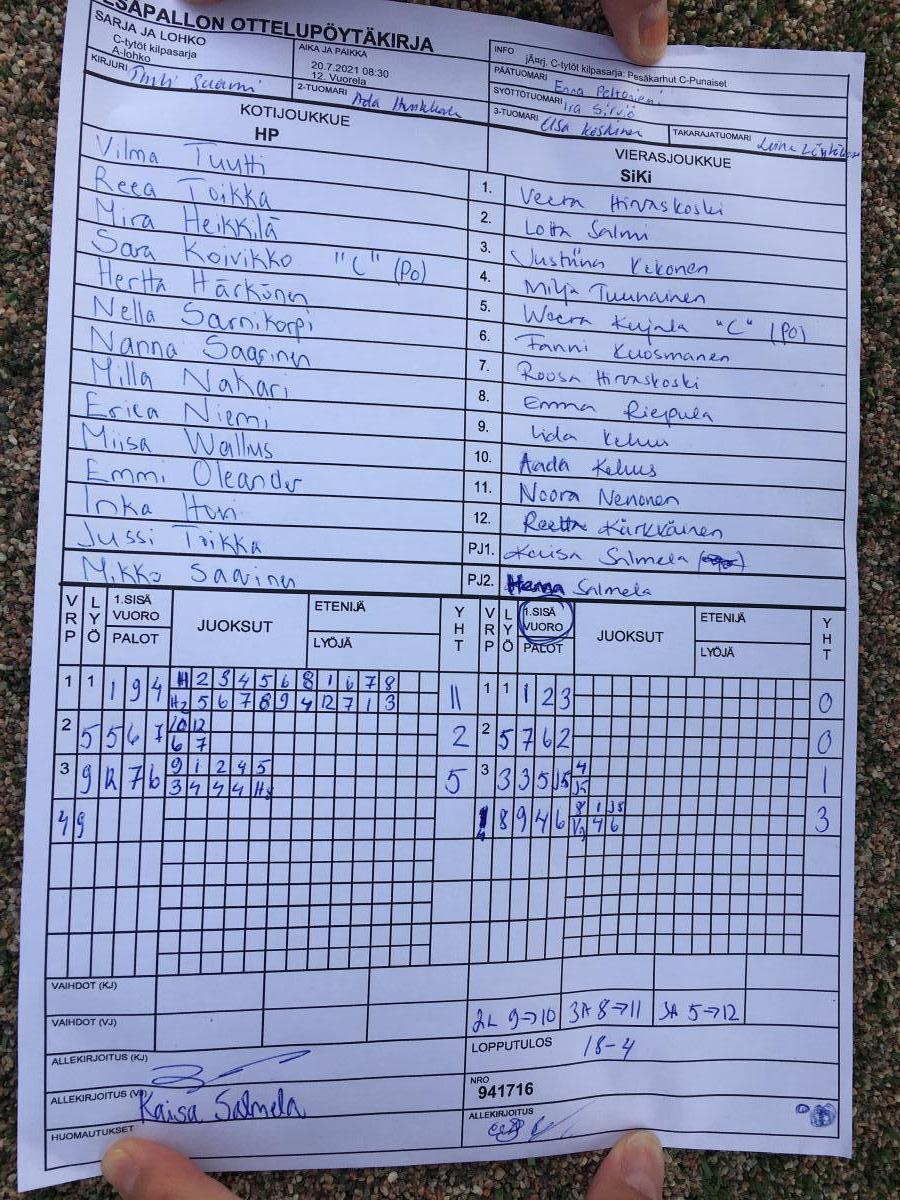 ESÄPALLON OTTELUPÖYTÄKIRJA
SARJA JA LOHKO
C-tytöt kilpasarja
A-lohko
AIKA JA PAIKKA
20.7.2021 08:30
12. Vuorela
INFO
jÄ¤rj. C-tytöt kilpasarja: Pesäkarhut C-Punaiset
KIRJURI
2-TUOMARI Ada
PÄÄTUOMARI Enna Peltoniemi
SYÖTTÖTUOMARI Ira Sirviö
3-TUOMARI Elsa Koskinen
TAKARAJATUOMARI
KOTIJOUKKUE
HP
VIERASJOUKKUE
SiKi
Vilma Tuutti 1. Veera Hirvaskoski
Reea Toikka 2. Lotta Salmi
Mira Heikkilä 3. Justiina Kekonen
Sara Koivikko "C" (PO) 4. Milja Tuunainen
Hertta Härkönen 5. Weera Kujala "C" (PO)
Nella Sarnikorpi 6. Fanni Kuosmanen
Nanna Saarinen 7. Roosa Hirvaskoski
Milla Nakari 8. Emma Riepula
Erica Niemi 9. Iida Kehus
Miisa Wallius 10. Aada Kehus
Emmi Oleander 11. Noora Nenonen
Inka 12. Reetta Kärkkäinen
Jussi Toikka PJ1. Kaisa Salmela
Mikko Saarinen PJ2. Salmela
VRP LYÖ 1.SISÄ VUORO PALOT JUOKSUT ETENIJÄ LYÖJÄ YHT VRP LYÖ 1.SISÄ VUORO PALOT JUOKSUT ETENIJÄ LYÖJÄ YHT
1 1 1 9 4 H 2 3 4 5 6 8 1 6 7 8 11 1 1 1 2 3 0
H2 5 6 7 8 9 4 12 7 1 3
2 5 5 6 7 10 12 2 2 5 7 6 2 0
6 7
3 9 12 7 6 9 1 2 4 5 5 3 3 3 5 J5 4 1
3 4 4 4 H5 J5
4 9 4 8 9 4 6 8 1 J5 3
4 6
VAIHDOT (KJ)
VAIHDOT (VJ)
2L 9→10 3A 8→11 3A 5→12
ALLEKIRJOITUS (KJ)
LOPPUTULOS 18-4
ALLEKIRJOITUS (VJ) Kaisa Salmela
NRO
941716
HUOMAUTUKSET
ALLEKIRJOITUS